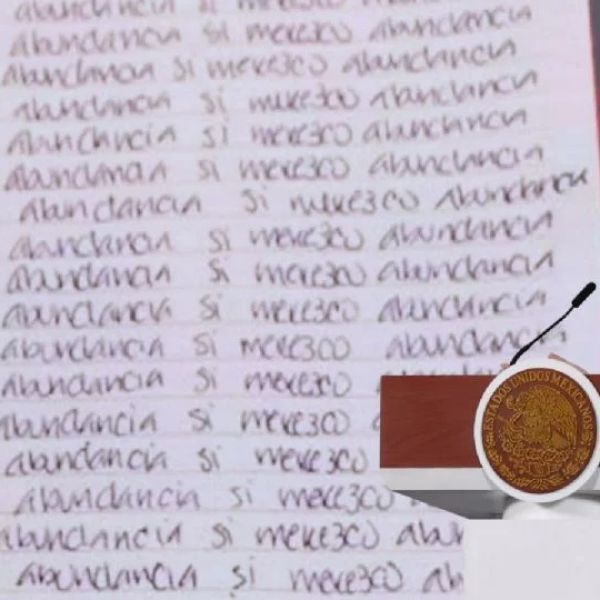 abundancia si merezco
abundancia si merezco abundancia
abundancia si merezco abundancia
abundancia si merezco abundancia
abundancia si merezco abundancia
abundancia si merezco abundancia
abundancia si merezco abundancia
abundancia si merezco abundancia
abundancia si merezco abundancia
abundancia si merezco abundancia
abundancia si merezco abundancia
abundancia si merezco
abundancia si merezco
abundancia si merezco
abundancia si merezco
abundancia si merezco abun
abundancia si merezco ab
ESTADOS UNIDOS MEXICANOS